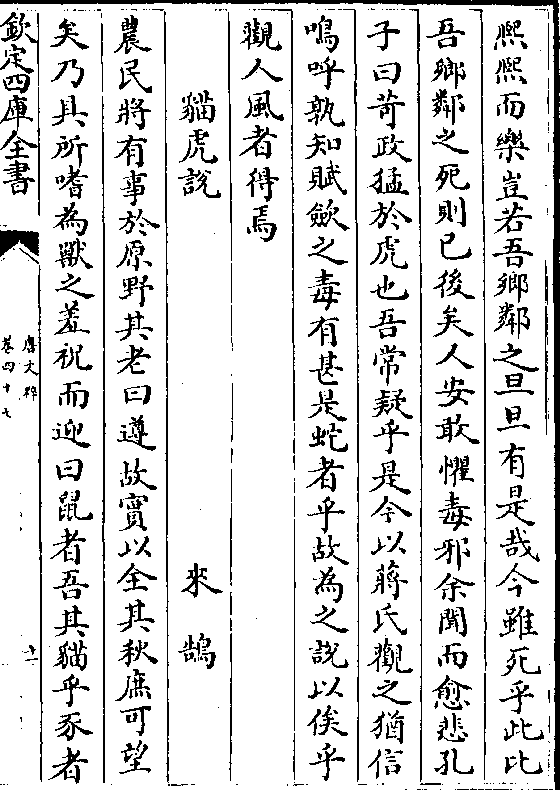 熙熙而樂豈若吾鄉鄰之旦旦有是哉今雖死乎此比
吾鄉鄰之死則已後矣人安敢懼毒邪余聞而愈悲孔
子曰苛政猛於虎也吾常疑乎是今以蔣氏觀之猶信
嗚呼孰知賦斂之毒有甚是蛇者乎故為之說以俟乎
觀人風者得焉
貓虎說 來鵠
農民將有事於原野其老曰遵故實以全其秋庶可望
矣乃具所嗜為獸之羞祝而迎曰鼠者吾其貓乎豕者
欽定四庫全書
唐文粹
卷四十七
十一